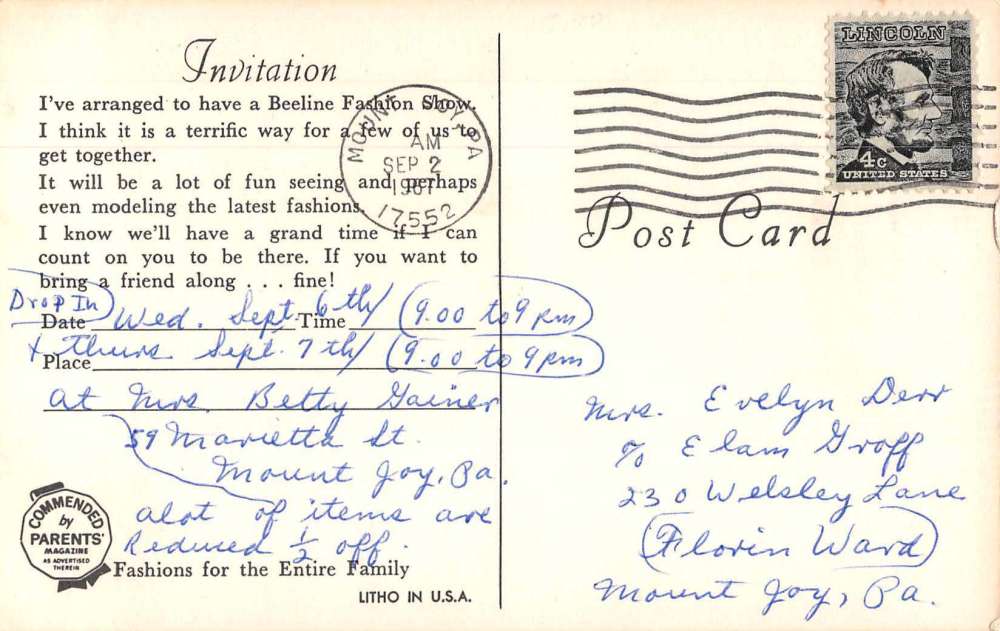 Invitation
I've arranged to have a Beeline Fashion Show.
I think it is a terrific way for a few of us to
get together.
It will be a lot of fun seeing and perhaps
even modeling the latest fashions.
I know we'll have a grand time if I can
count on you to be there. If you want to
bring a friend along . . . fine!
Drop In
Date Wed. Sept. 6th/ Time (9.00 to 9 pm)
+ Thurs Sept. 7th/ (9.00 to 9 pm)
Place
at Mrs. Betty Gainer
59 Marietta St.
Mount Joy, Pa.
alot of items are
Reduced ½ off.
COMMENDED
by
PARENTS'
MAGAZINE
AS ADVERTISED
THEREIN
Fashions for the Entire Family
LITHO IN U.S.A.
MOUNT JOY, PA
AM
SEP 2
1967
17552
LINCOLN
4c
UNITED STATES
Post Card
Mrs. Evelyn Derr
% Elam Groff
230 Welsley Lane
(Florin Ward)
Mount Joy, Pa.